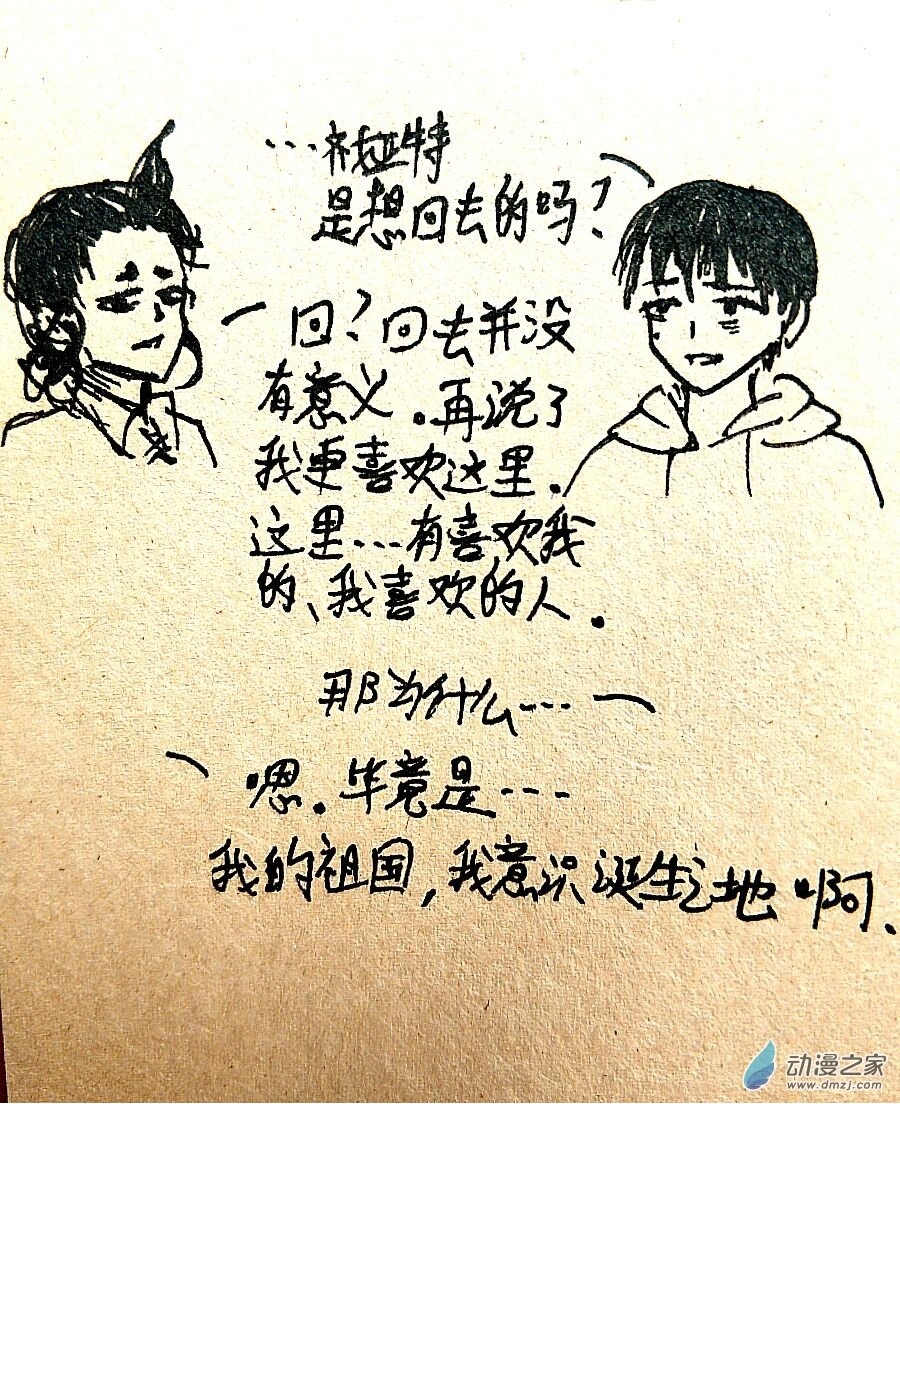 …祓亚特
是想回去的吗?
回?回去并没
有意义.再说了
我更喜欢这里.
这里…有喜欢我
的、我喜欢的人.
那为什么…
嗯.毕竟是…
我的祖国,我意识诞生之地啊.
动漫之家
www.dmzj.com